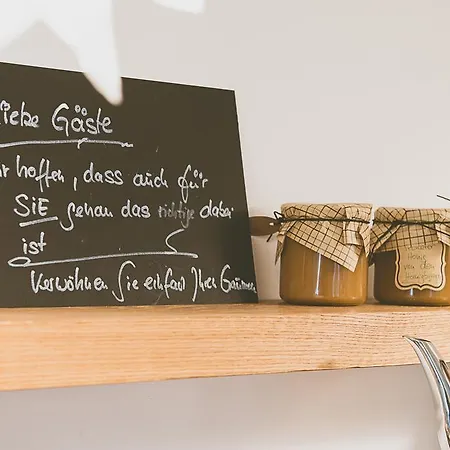 iebe Gäste
r hoffen, dass auch für
SIE genau das richtige dabei
ist
Verwöhnen Sie einfach Ihren Gaumen
Honig
von der